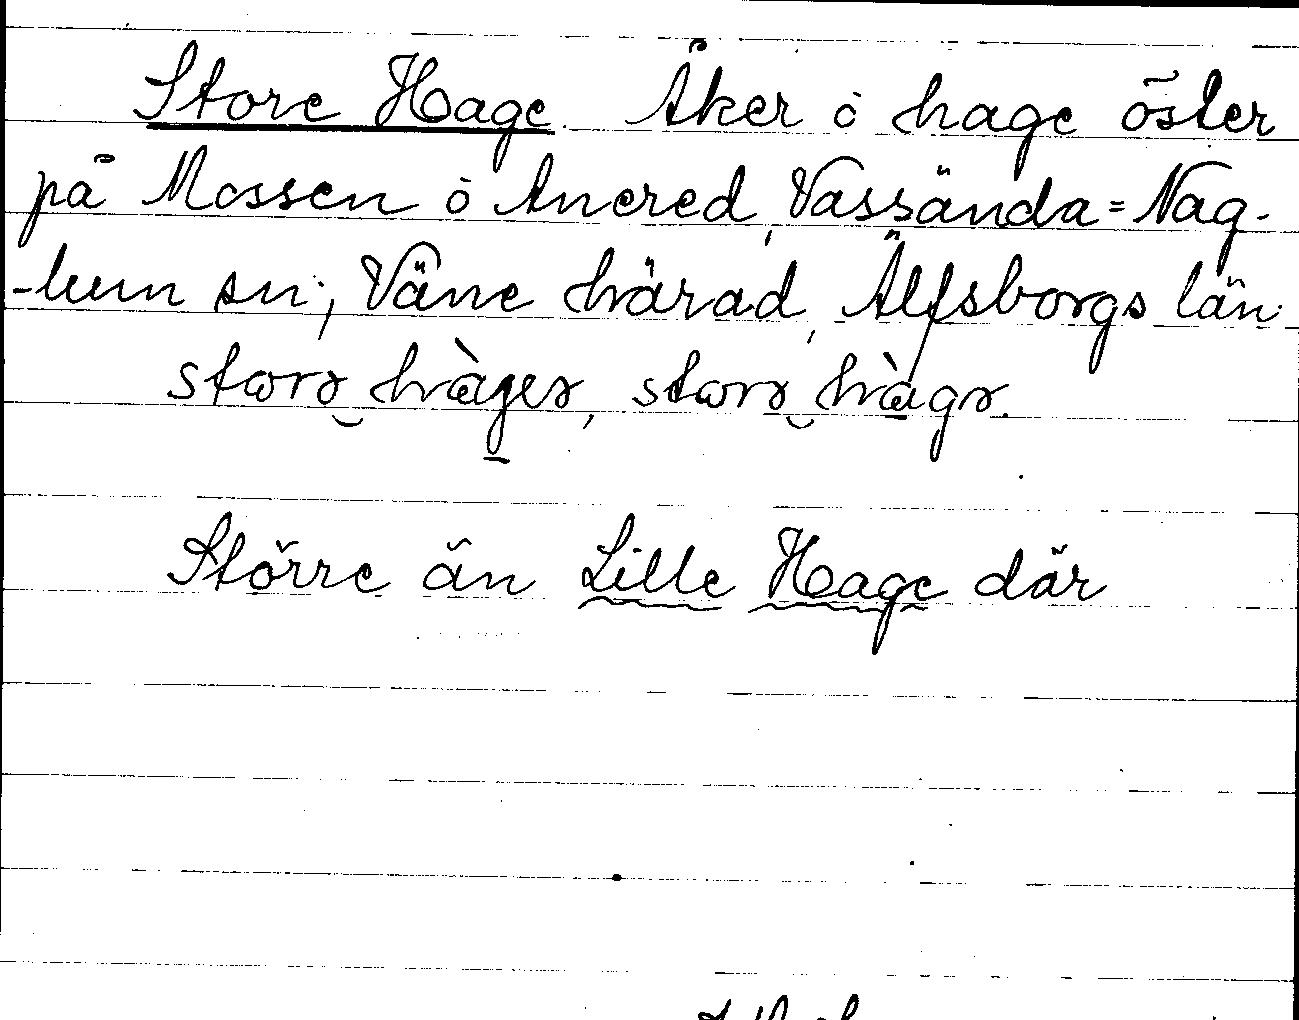 Store Hage. Åker o hage öster
på Mossen o Anered, Vassända=Nag-
-lum sn., Väne härad, Älfsborgs län.
Större än Lille Hage där